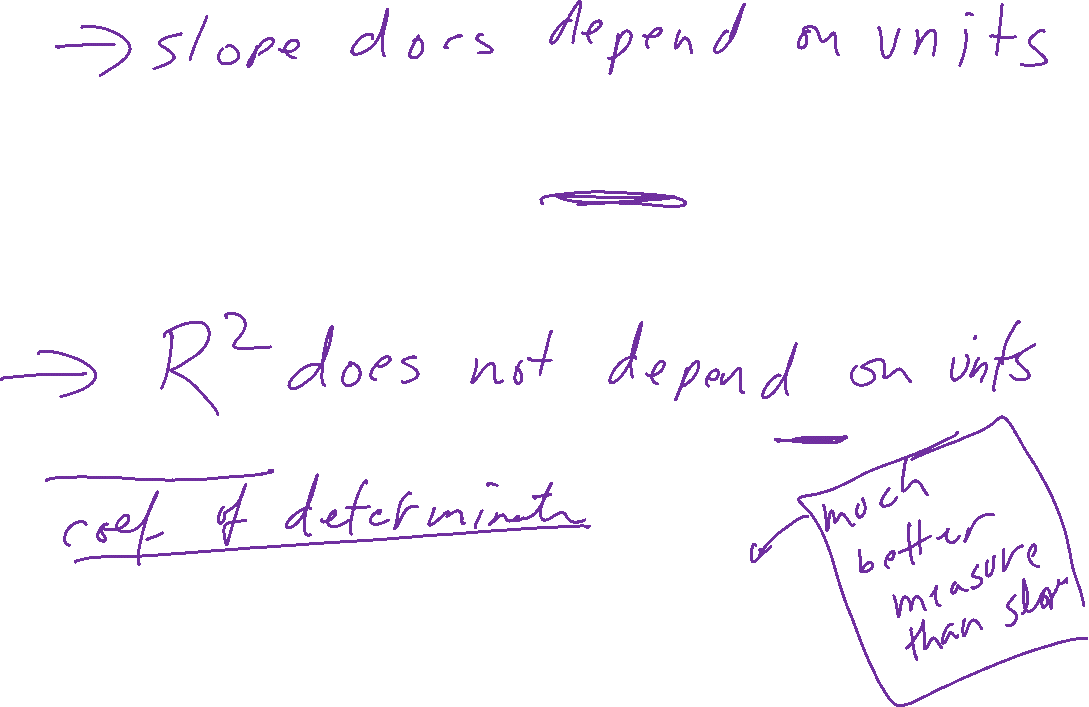 → slope does depend on units
→ R² does not depend on units
coef. of determinatn
much
better
measure
than slop